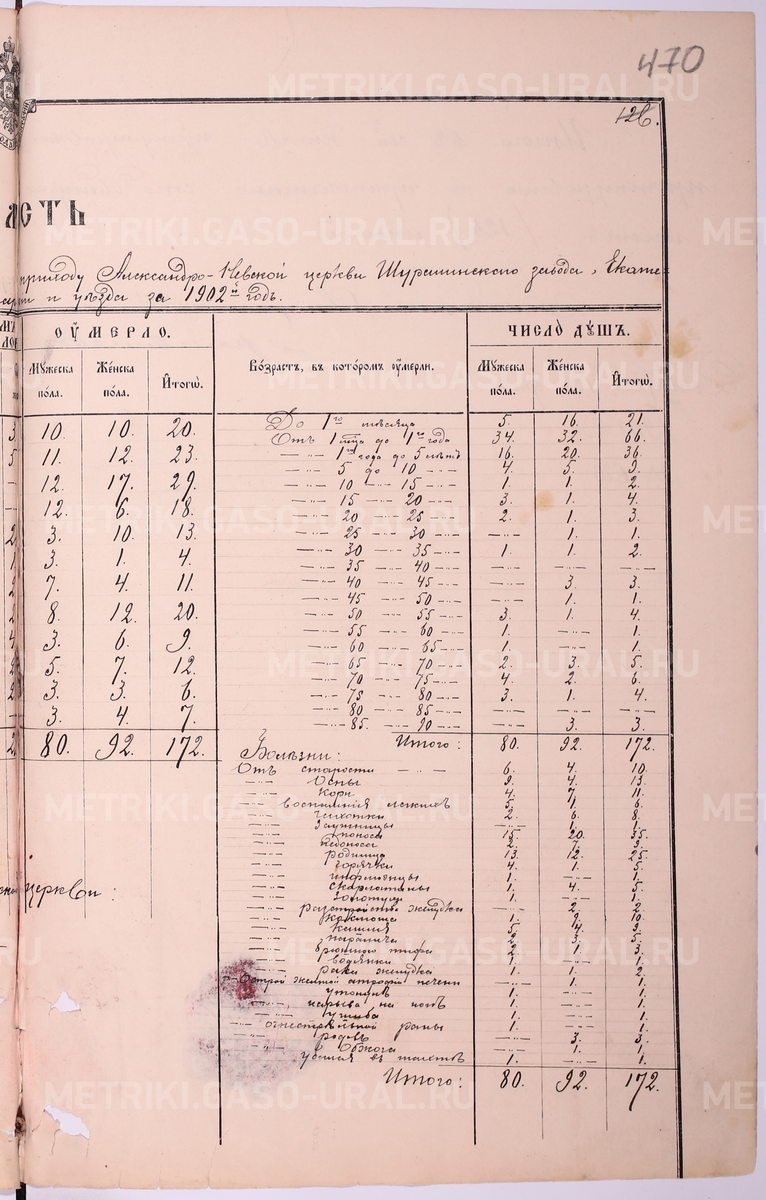 470
126.
асть
приходу Александро-Невской церкви Шуралинскаго завода, Екате=
и уѣзда за 1902й годъ.
ОУМЕРЛО. ЧИСЛО ДУШЪ.
Мужеска пола. Женска пола. Итого. Возрастъ, въ которомъ оумерли. Мужеска пола. Женска пола. Итого.
10. 10. 20.
11. 12. 23.
12. 17. 29.
12. 6. 18.
3. 10. 13.
3. 1. 4.
7. 4. 11.
8. 12. 20.
3. 6. 9.
5. 7. 12.
3. 3. 6.
3. 4. 7.
80. 92. 172.
церкви:
До 1го мѣсяца 5. 16. 21.
Отъ 1 мѣца до 1го года 34. 32. 66.
— " — 1го года до 5 лѣтъ 16. 20. 36.
— " — 5 до 10 — " — 4. 5. 9.
— " — 10 — " — 15 — " — 1. 1. 2.
— " — 15 — " — 20 — " — 3. 1. 4.
— " — 20 — " — 25 — " — 2. 1. 3.
— " — 25 — " — 30 — " — — " — 1. 1.
— " — 30 — " — 35 — " — 1. 1. 2.
— " — 35 — " — 40 — " — — " — — " — — " —
— " — 40 — " — 45 — " — — " — 3. 3.
— " — 45 — " — 50 — " — — " — 1. 1.
— " — 50 — " — 55 — " — 3. 1. 4.
— " — 55 — " — 60 — " — 1. — " — 1.
— " — 60 — " — 65 — " — 1. — " — 1.
— " — 65 — " — 70 — " — 2. 3. 5.
— " — 70 — " — 75 — " — 4. 2. 6.
— " — 75 — " — 80 — " — 3. 1. 4.
— " — 80 — " — 85 — " — — " — — " — — " —
— " — 85. — " — 90 — " — — " — 3. 3.
Итого: 80. 92. 172.
Болѣзни:
Отъ старости — " — 6. 4. 10.
— " — Оспы 9. 4. 13.
— " — Кори 4. 7. 11.
— " — воспаленія легкихъ 5. 1. 6.
— " — чахотки 2. 6. 8.
— " — заушницы — " — 1. 1.
— " — поноса 15. 20. 35.
— " — недоноса 2. 7. 9.
— " — родимца 13. 12. 25.
— " — горячки 4. 1. 5.
— " — инфлюэнцы 1. — " — 1.
— " — скарлатины 1. 4. 5.
— " — золотухи 1. — " — 1.
— " — разстройства желудка — " — 2. 2.
— " — коклюша 1. 9. 10.
— " — кашля 5. 4. 9.
— " — паралича 2. 3. 5.
— " — брюшного тифа 2. 1. 3.
— " — водянки 1. — " — 1.
— " — рака желудка 1. 1. 2.
— " — Острой желтой атрофіи печени — " — 1. 1.
— " — нарыва на 1. — " — 1.
— " — ушиба 1. — " — 1.
— " — огнестрѣльной раны 1. — " — 1.
— " — родовъ — " — 3. 3.
— " — обжога — " — 1. 1.
въ шахтѣ 1. — " — 1.
Итого: 80. 92. 172.
METRIKI.GASO-URAL.RU